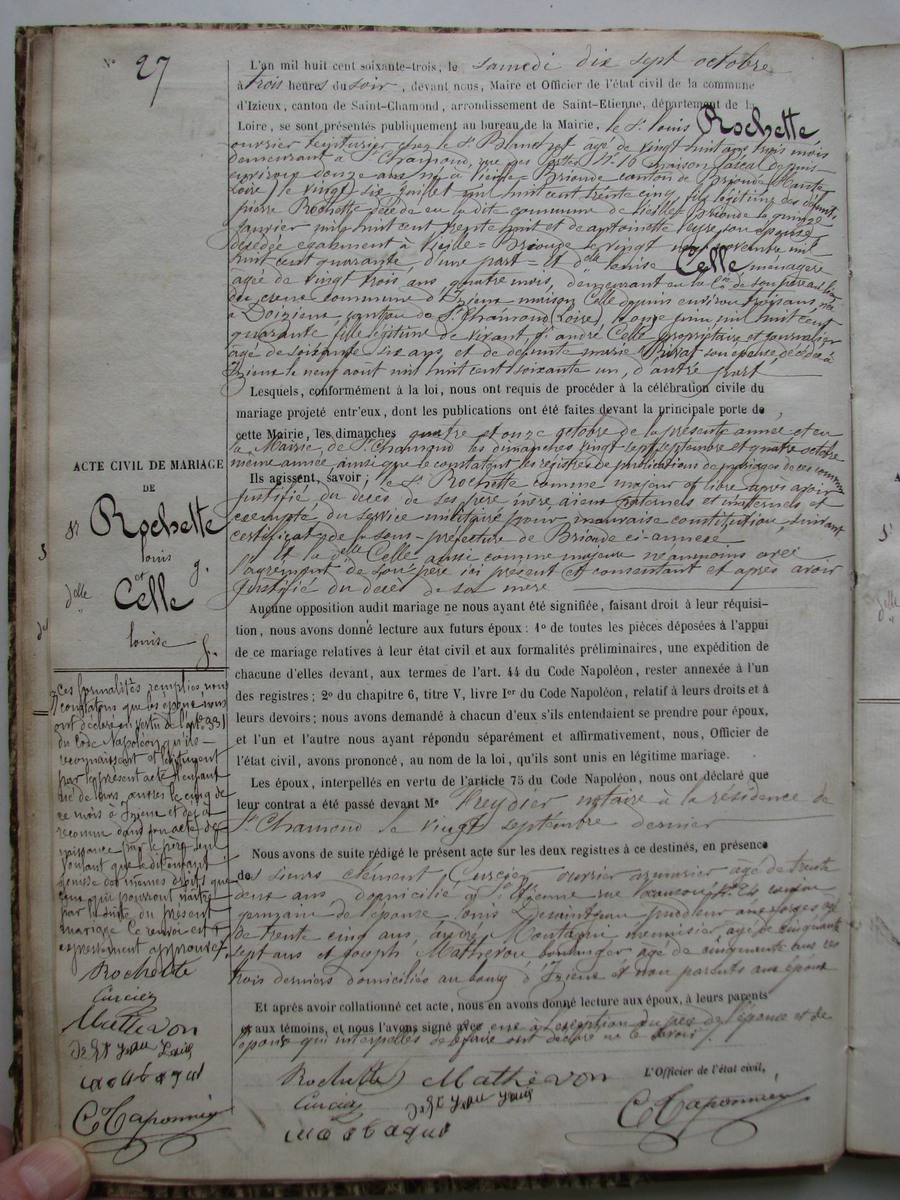 N° 27
L'an mil huit cent soixante-trois, le samedi dix sept octobre
à trois heures du soir, devant nous, Maire et Officier de l'état civil de la commune
d'Izieux, canton de Saint-Chamond, arrondissement de Saint-Etienne, département de la
Loire, se sont présentés publiquement au bureau de la Mairie, le Sr. louis Rochette
ouvrier teinturier chez le Sr. âgé de vingt huit ans trois mois
demeurant à St. Chamond, rue des N°. 16 maison Pascal depuis
environ douze ans né à Vieille=Brioude canton de Brioude (Haute
Loire) le vingt six juillet mil huit cent trente cinq fils légitime des défunts
pierre Rochette décédé en la dite commune de Vieille=Brioude le quinze
janvier mil huit cent trente huit et de antoinette son épouse
décédée également à Vieille=Brioude le vingt novembre mil
huit cent quarante, d'une part = et Delle louise Celle ménagère
âgée de vingt trois ans, quatre mois, demeurant en la Cie. de son père au lieu
du creux commune d'Izieux maison Celle depuis environ trois ans, née
à Doizieux canton de St. Chamond (Loire) le onze juin mil huit cent
quarante fille légitime de vivant, Sr. andré Celle propriétaire et journalier
âgé de soixante six ans, et de défunte marie son épouse, décédée à
Izieux le neuf août mil huit cent soixante un, d'autre part
Lesquels, conformément à la loi, nous ont requis de procéder à la célébration civile du
mariage projeté entr'eux, dont les publications ont été faites devant la principale porte de
cette Mairie, les dimanches quatre et onze octobre de la présente année et en
la Mairie de St. Chamond les dimanches vingt sept septembre et quatre octobre
même année, ainsi que le constatent les registres de publications de mariages de ces communes
Ils agissent, savoir; le Sr. Rochette comme majeur et libre après avoir
justifié du décès de ses père, mère, aïeux paternels et maternels et
exempté du service militaire pour mauvaise constitution, suivant
certificat de la sous-préfecture de Brioude ci-annexé
et la Delle Celle aussi comme majeure néanmoins avec
l'agrément de son père ici présent et consentant et après avoir
justifié du décès de sa mère
Aucune opposition audit mariage ne nous ayant été signifiée, faisant droit à leur réquisi-
tion, nous avons donné lecture aux futurs époux : 1° de toutes les pièces déposées à l'appui
de ce mariage relatives à leur état civil et aux formalités préliminaires, une expédition de
chacune d'elles devant, aux termes de l'art. 44 du Code Napoléon, rester annexée à l'un
des registres ; 2° du chapitre 6, titre V, livre Ier du Code Napoléon, relatif à leurs droits et à
leurs devoirs ; nous avons demandé à chacun d'eux s'ils entendaient se prendre pour époux,
et l'un et l'autre nous ayant répondu séparément et affirmativement, nous, Officier de
l'état civil, avons prononcé, au nom de la loi, qu'ils sont unis en légitime mariage.
Les époux, interpellés en vertu de l'article 75 du Code Napoléon, nous ont déclaré que
leur contrat a été passé devant Me Freydier notaire à la résidence de
St. Chamond le vingt septembre dernier
Nous avons de suite rédigé le présent acte sur les deux registres à ce destinés, en présence
des sieurs clément Curciez ouvrier armurier âgé de trente
deux ans, domicilié à St. Etienne rue N°. 24, cousin
germain de l'épouse, louis aux forges âgé
de trente cinq ans, andré Montagne menuisier âgé de cinquante
sept ans et joseph Mathevon boulanger âgé de cinquante ans ces
trois derniers domiciliés au bourg d'Izieux et non parents aux époux
Et après avoir collationné cet acte, nous en avons donné lecture aux époux, à leurs parents
et aux témoins, et nous l'avons signé avec eux à l'exception du père de l'épouse et de
l'épouse qui interpellés de le faire ont déclaré ne le savoir
L'Officier de l'état civil,
Rochette Mathevon
Curciez
ACTE CIVIL DE MARIAGE
DE
Sr. Rochette
louis
et
Delle Celle
louise
Ces formalités remplies, nous
constatons que les époux nous
ont déclaré en vertu de l'art. 331
du Code Napoléon qu'ils
reconnaissent et légitiment
par le présent acte l'enfant
né de leurs œuvres le cinq de
ce mois à Izieux et déjà
reconnu dans son acte de
naissance par le père seul
voulant que le dit enfant
jouisse des mêmes droits que
ceux qui pourront naître
par la suite du présent
mariage Ce renvoi est
expressément approuvé
Rochette
Curciez
Mathevon